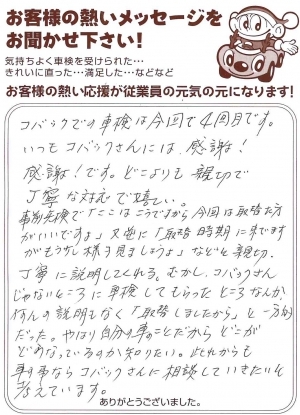 お客様の熱いメッセージを
お聞かせ下さい！
気持ちよく車検を受けられた…
きれいに直った…満足した…などなど
お客様の熱い応援が従業員の元気の元になります！
コバックでの車検は今回で4回目です。
いつもコバックさんには、感謝！
感謝！です。どこよりも親切で
丁寧な対応で嬉しい。
事前点検で「ここはこうですから今回は取替た方
がいいですよ」又逆に「取替時期に来てます
がもう少し様子見ましょう」などと親切、
丁寧に説明してくれる。むかし、コバックさん
じゃないところに車検してもらったところなんか
何んの説明もなく「取替しましたから」と一方的
だった。やはり自分の車のことだからどこが
どのなっているのか知りたい。此れからも
車の事ならコバックさんに相談していきたいと
考えています。
ありがとうございました。